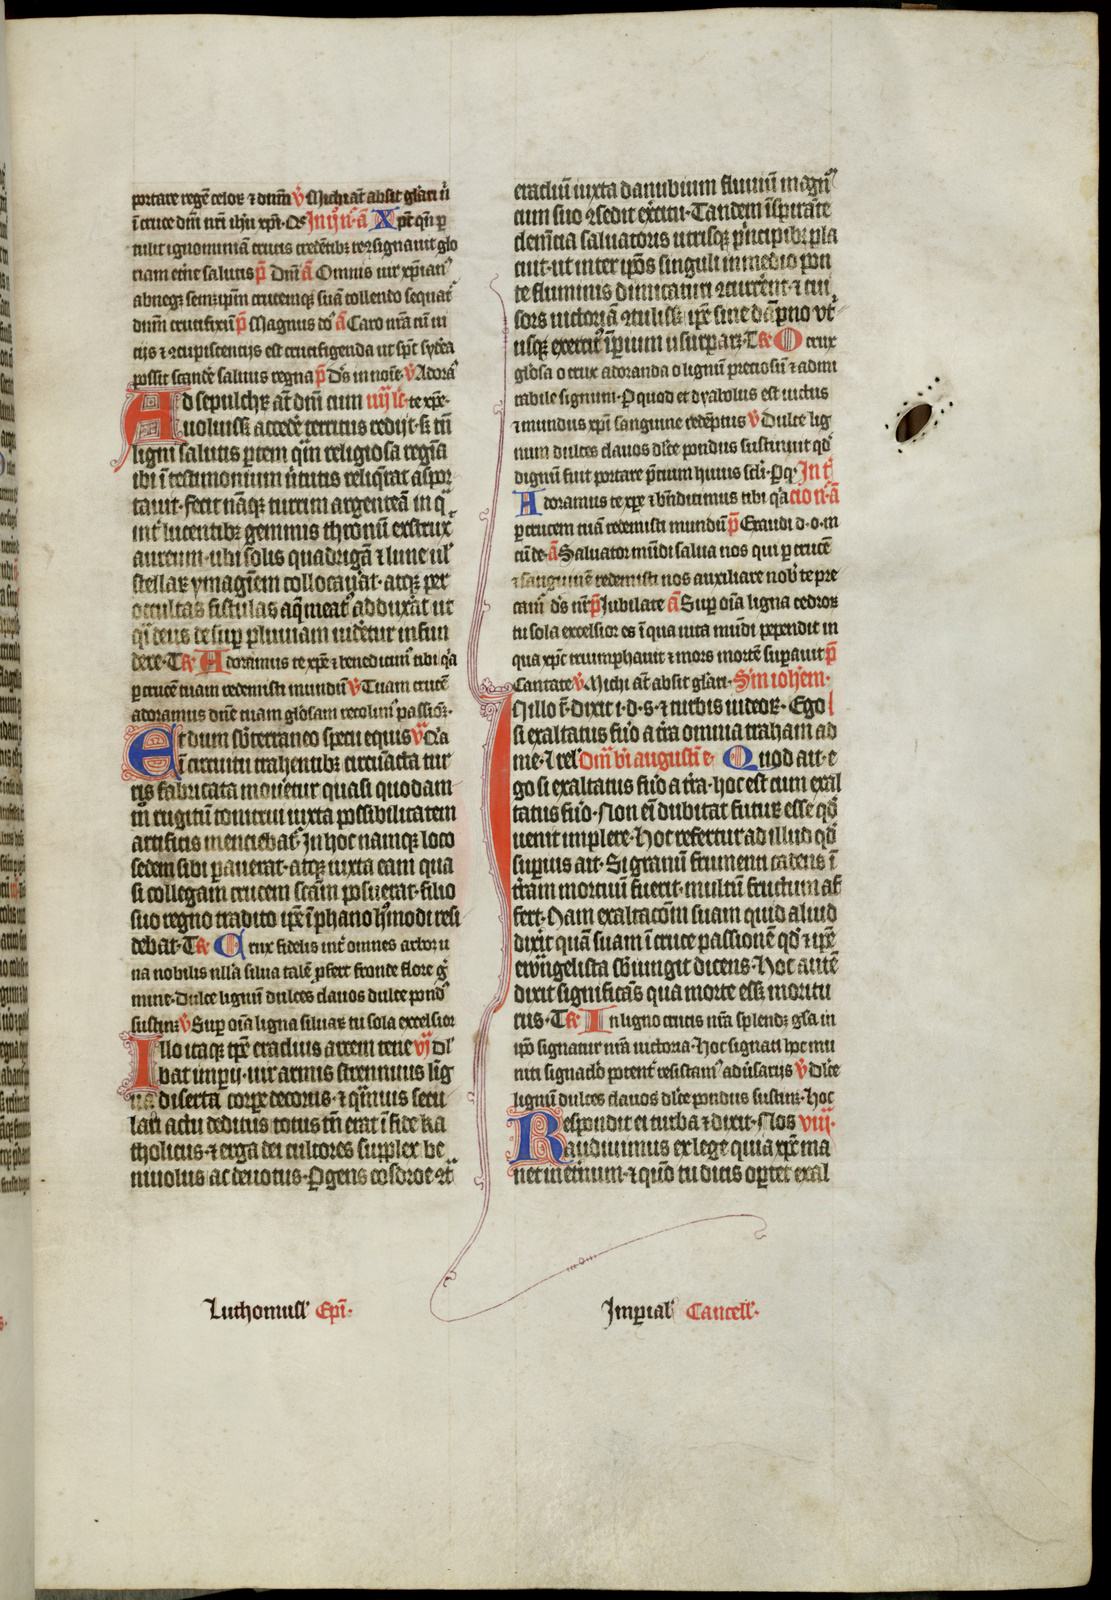 portare regē celoꝝ ⁊ dnm̄ v̄ Michi at̄ absit glāri n̄
ī cruce dn̄i nr̄i ihū xp̄i. Oſ In ij n̄ ā Xp̄c qn̄ p
tulit ignominiā crucis credētibꝫ cōsignauit glo
riam eterne salutis p̄ Dn̄i ā Omnis uir xp̄ian⁹
abnegꝫ semꝫ ip̄m crucemqꝫ suā tollendo sequat᷑
dnm̄ crucifixū p̄ Magnus do᷑ ā Caro nr̄a cū ui
cijs ⁊ ꝯcupiscentijs est crucifigenda ut sp̄c sydēa
possit scandē saluus regna p̄ Dſ in noīe v̄ Adora᷑
Ad sepulchꝝ at̄ dn̄i cum iiij lc̄ te xpe
uoluissꝫ accedē territus redijt. sꝫ tn̄
ligni salutis ꝑtem qm̄ religiosa regīa
ibi ī testimonium ūtutis reliq̄rat aspor
tauit. fecit nāqꝫ turrim argenteā in q̄
int᷑ lucentibꝫ gemmis thronū exstrux
aureum. ubi solis quadrigā ⁊ lune ul᷑
stellaꝝ ymaginem collocauat. atqꝫ per
occultas fistulas aq̄ meat⁹ adduxat ut
q̄i deus desup pluuiam uidetur infun
dere. T℟ Adoramus te xp̄e ⁊ benedicim⁹ tibi q̄a
ꝑ crucē tuam redemisti mundū v̄ Tuam crucē
adoramus dn̄e tuam glōsam recolim⁹ passiōꝫ.
Et dum sb̄terraneo specu equis v̄ q̄a
ī circuitu trahentibꝫ circūacta tur
ris fabricata mouetur quasi quodam
m̄ rugitū tonitrui iuxta possibilitatem
artificis menciebat᷑. In hoc namqꝫ loco
sedem sibi ꝑauerat. atqꝫ iuxta eam qua
si collegam crucem scām posuerat. filio
suo regno tradito ip̄e ī phano hꝰmodi resi
debat. T℟ Crux fidelis int᷑ omnes arbor u
na nobilis nulla silua talē ꝓfert fronde flore ḡ
mine. Dulce lignū dulces clauos dulce pond⁹
sustinꝫ v̄ Sup oīa ligna siluaꝝ tu sola excelsior
Illo itaqꝫ tp̄e eraclius arcem tene vj dl᷑
bat imperij. uir armis strennuus līg
ua diserta corpꝛe decorus. ⁊ q̄muis secu
lari actu deditus totus tn̄ erat ī fide ka
tholicus. ⁊ erga dei cultores supplex be
niuolus ac deuotus. Pgens cosdroe ꝯt᷑
eracliū iuxta danubium fluuiū magn⁰
cum suo ꝯsedit exēcitu. Tandem īspirāte
clemēcia saluatoris utrisqꝫ p̄ncipibꝫ pla
cuit. ut inter ip̄os singuli in medio pon
te fluminis dimicaturi ꝯcurrēnt. ⁊ cui
sors uictoriā ꝯtulissꝫ ip̄e sine dāpno vt᷑
iusqꝫ exercit⁹ īpium usurparꝫ. T℟ O crux
glōsa o crux adoranda o lignū preciosū ⁊ admi
rabile signum. P quod et dyabolus est uictus
⁊ mundus xp̄i sanguine redēptus v̄ Dulce lig
num dulces clauos dl̄ce pondus sustinuit qd̄
dignū fuit portare p̄cium huius scl̄i. Pq̄. In t᷑
Adoramus te xp̄e ⁊ bn̄dicimus tibi q̄a cio n̄ ā
ꝑ crucem tuā redemisti mundū p̄ Exaudi d. o. m
cū de. ā Saluator mūdi salua nos qui ꝑ crucē
⁊ sanguinē redemisti nos auxiliare nob᷑ te pre
cam᷑ dſ nr̄ p̄ Iubilate ā Sup oīa ligna cedroꝝ
tu sola excelsior es ī qua uita mūdi pependit in
qua xp̄c triumphauit ⁊ mors mortē supauit p̄
Cantate v̄ Michi at̄ absit glāri. Sm̄ ioh̄em.
In illo t̄. dixit i. d. s. ⁊ turbis iudeoꝝ. Ego
si exaltatus fūo a t̄ra omnia traham ad
me. ⁊ rel᷑ Om̄ bi augusti ep̄. Quod ait. e
go si exaltatus fūo a t̄ra. hoc est cum exal
tatus fūo. Non ei᷑ dubitat futuꝝ esse qd̄
uenit implere. Hoc refertur ad illud qd̄
supius ait. Si granū frumenti cadens ī
t̄ram mortuū fuerit. multū fructum af
fert. Nam exaltacōm suam quid aliud
dixit quā suam ī cruce passionē qd̄ ⁊ ip̄e
ewāgelista sb̄iungit dicens. Hoc autē
dixit significās qua morte essꝫ moritu
rus. T℟ In ligno crucis nr̄a splendꝫ glā in
ip̄o signatur nr̄a uictoria. Hoc signati hoc mu
niti signacl̄o potent᷑ resistam⁹ adūsarijs v̄ Dl̄ce
lignū dulces clauos dl̄ce pondus sustinꝫ. Hoc
Respondit ei turba ⁊ dixit. Nos viij.
audiuimus ex lege quia xp̄c ma
net in et̄num. ⁊ quō tu dicis oportet exal
Luthomussl᷑ Ep̄i.
Imperial᷑ Cancell᷑.